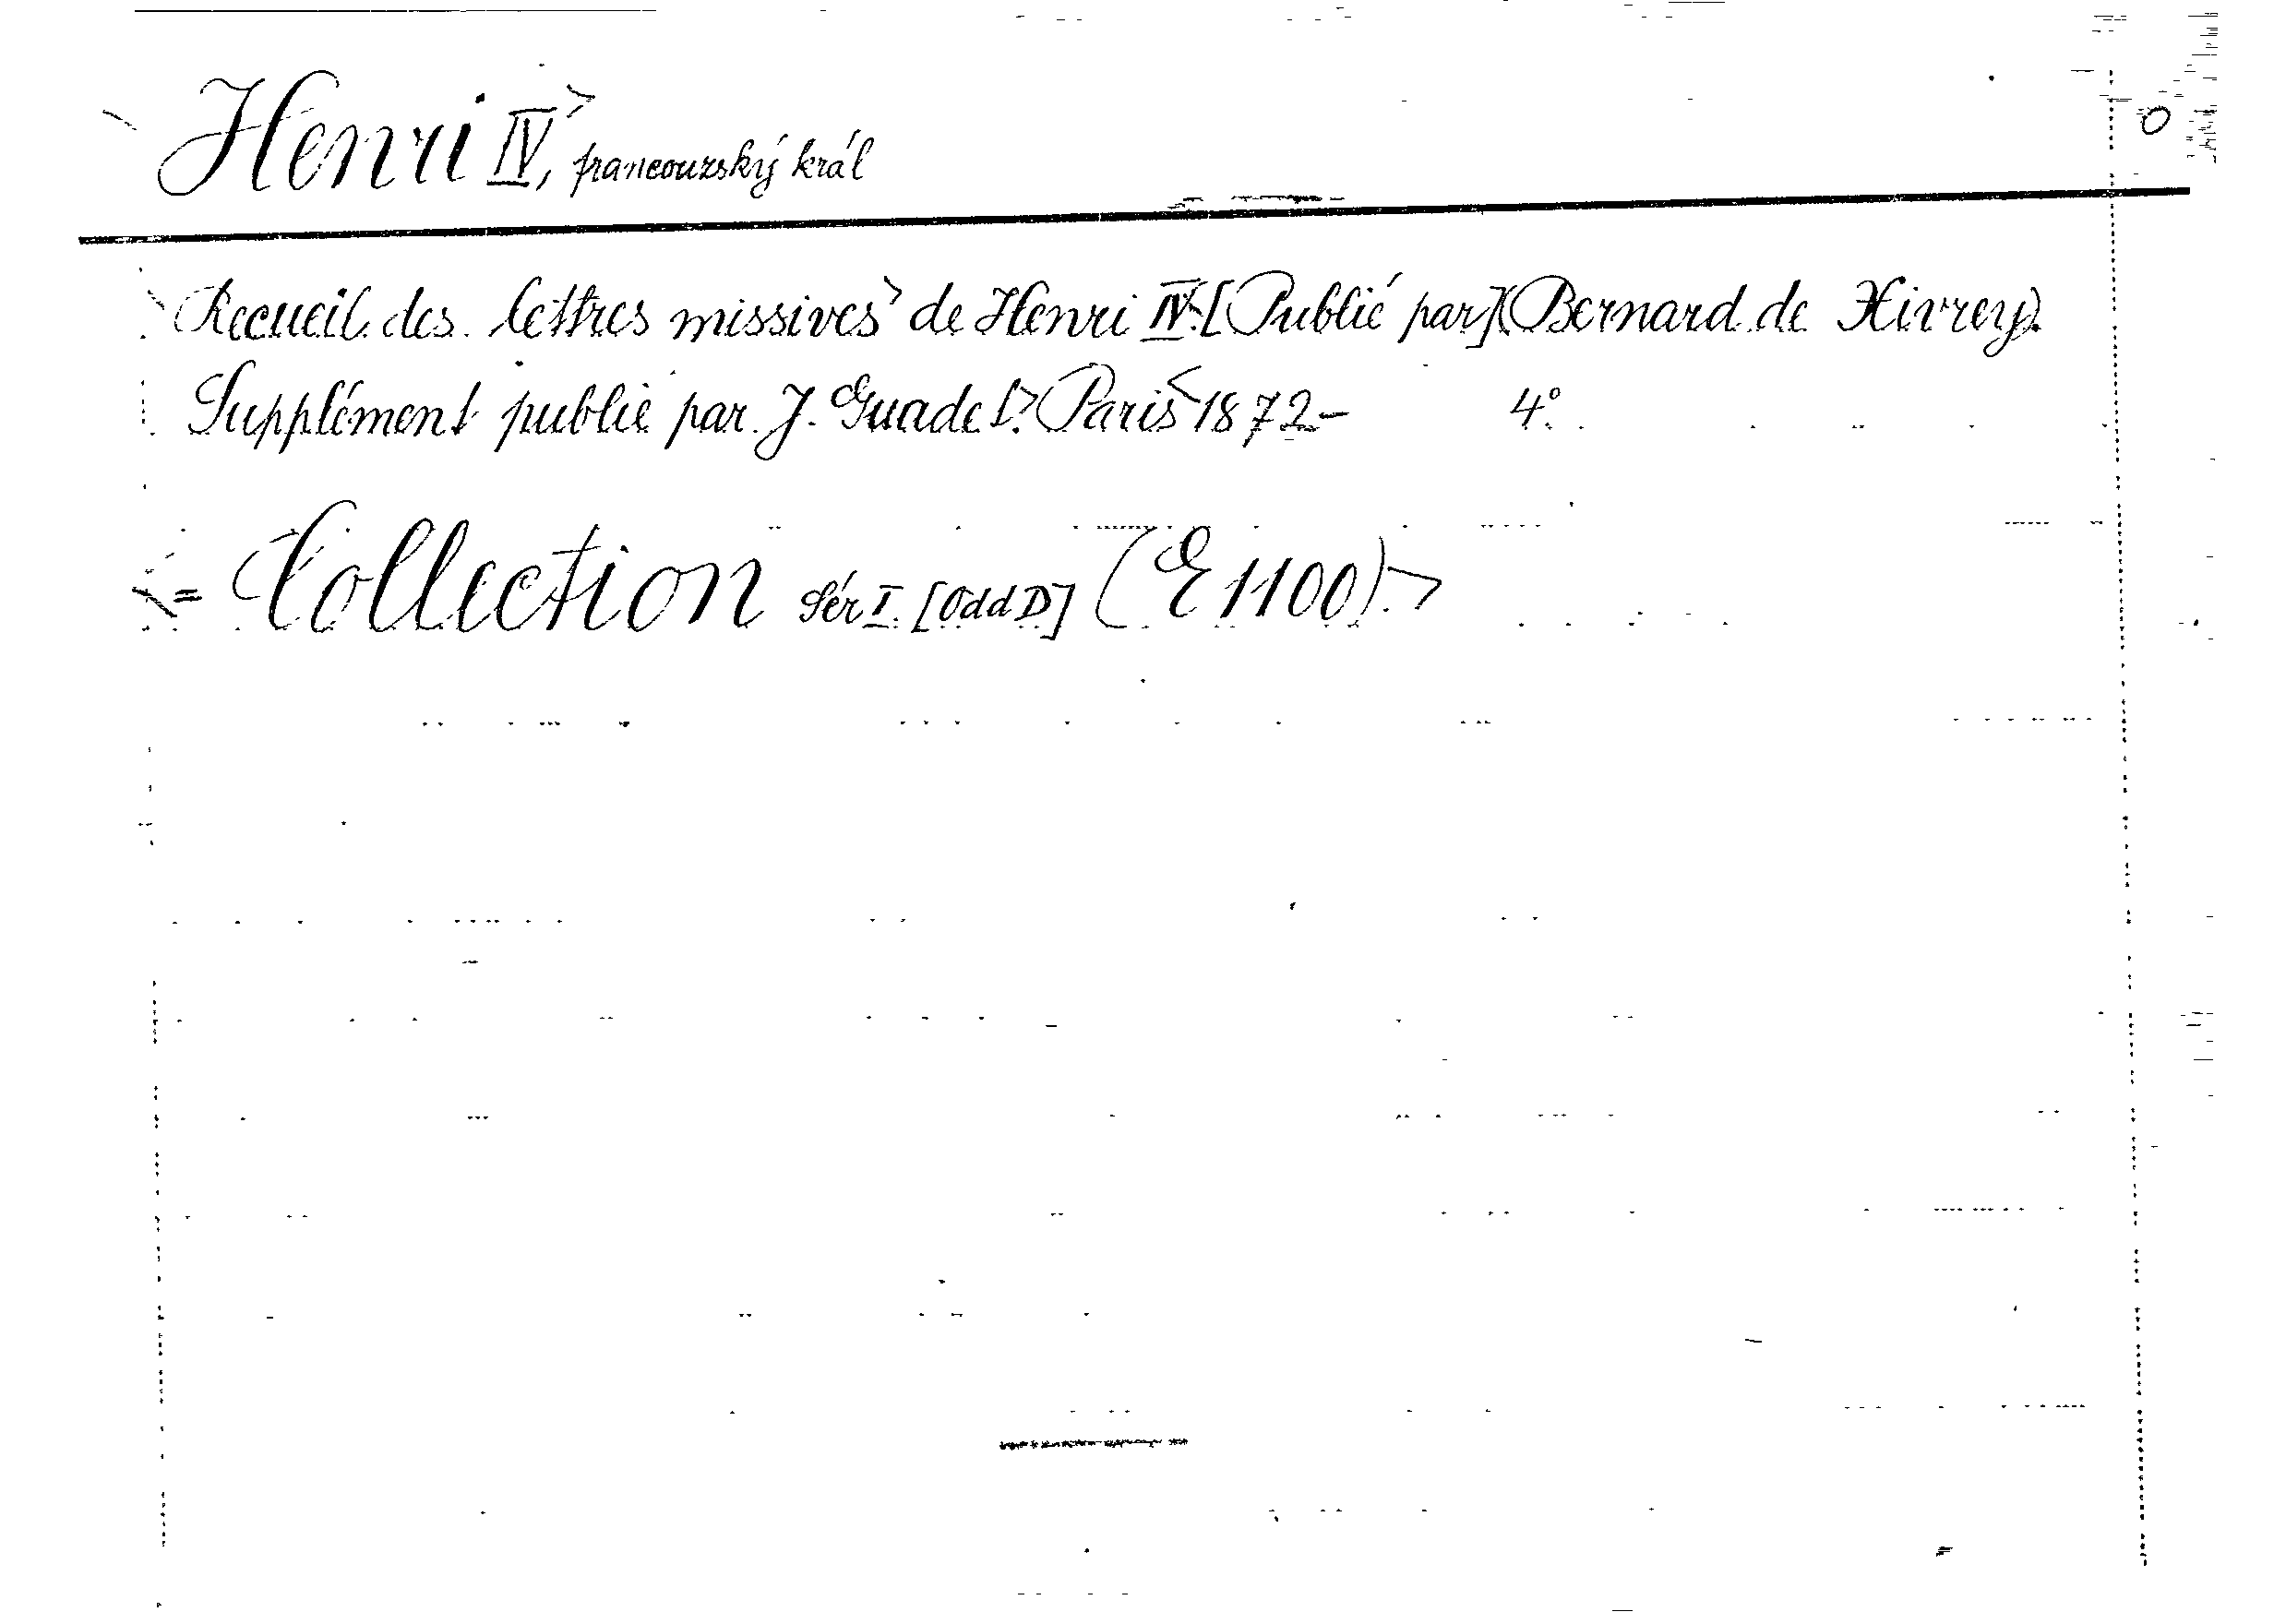 Henri IV, francouzský král
Recueil des lettres missives de Henri IV. [Publié par] (Bernard de Xivrey).
Supplément publié par J. Guadet. Paris 1872- 4°.
= Collection Sér I. [Odd D] (E 1100).